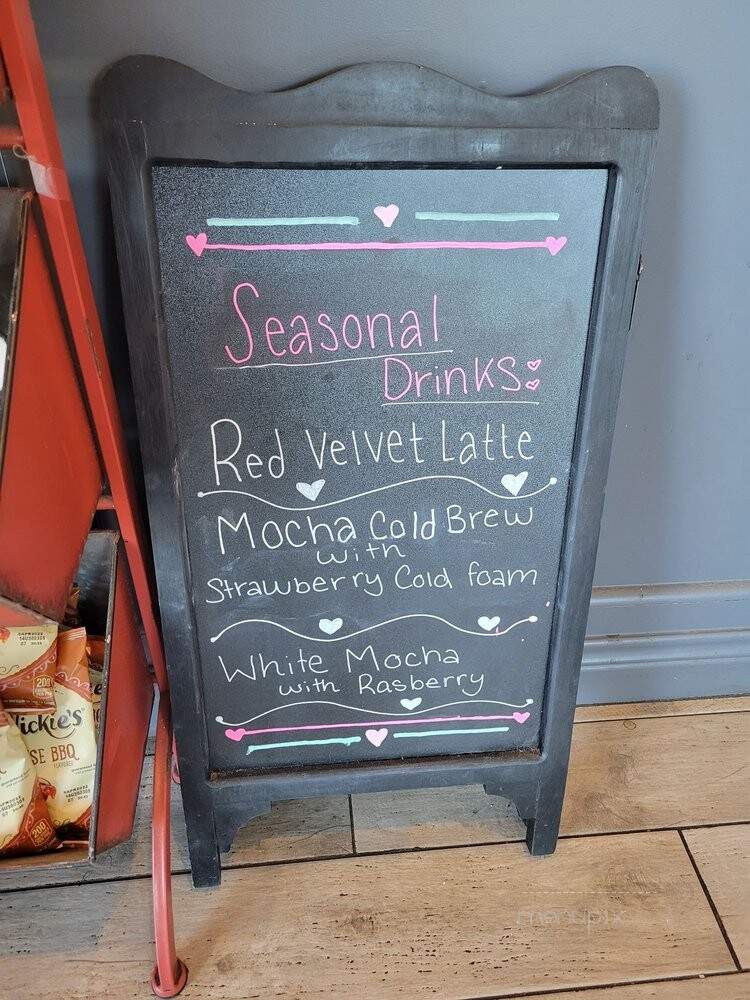 Seasonal
Drinks:
Red Velvet Latte
Mocha Cold Brew
with
Strawberry Cold foam
White Mocha
with Rasberry
Vickie's
SE BBQ
200
menupix